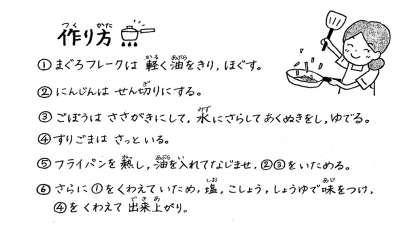 作り方
①まぐろフレークは 軽く油をきり、ほぐす。
②にんじんは せん切りにする。
③ごぼうは ささがきにして、水にさらしてあくぬきをし、ゆでる。
④すりごまは さっといる。
⑤フライパンを熱し、油を入れてなじませ、②③をいためる。
⑥さらに ①をくわえていため、塩、こしょう、しょうゆで味をつけ、
④をくわえて 出来上がり。